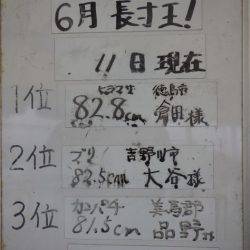 6月長寸王!
11日現在
1位 ヒラマサ 徳島市
82.8cm 倉田様
2位 ブリ 吉野川市
82.5cm 大谷様
3位 カンパチ 美馬郡
81.5cm 品野様